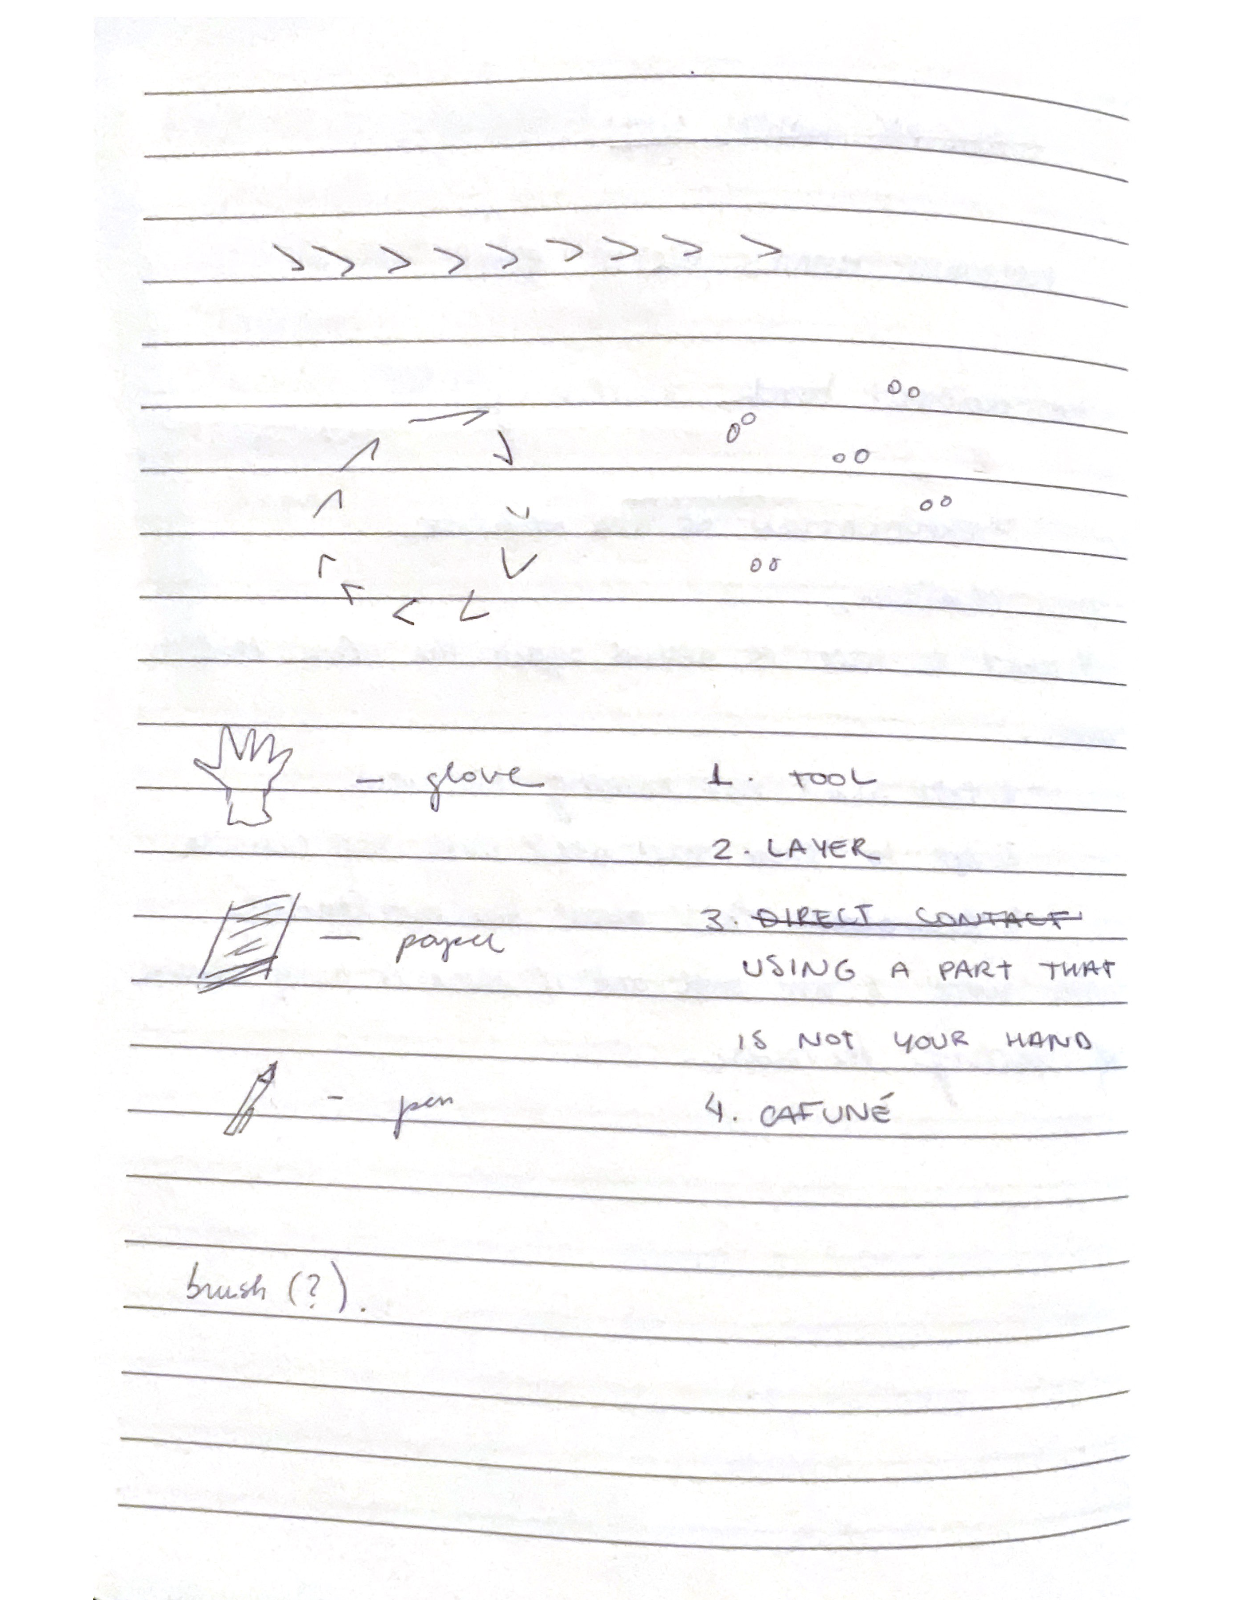 — glove
1. TOOL
2. LAYER
— paper
3. DIRECT CONTACT
USING A PART THAT
IS NOT YOUR HAND
- pen
4. CAFUNÉ
brush (?).